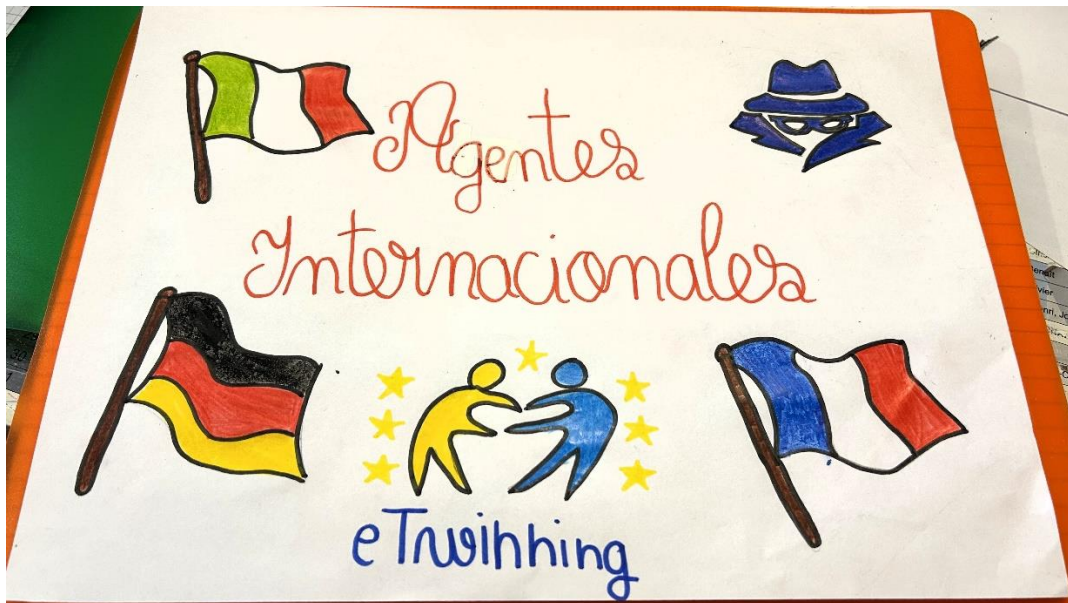 Agentes
Internacionales
eTwinning